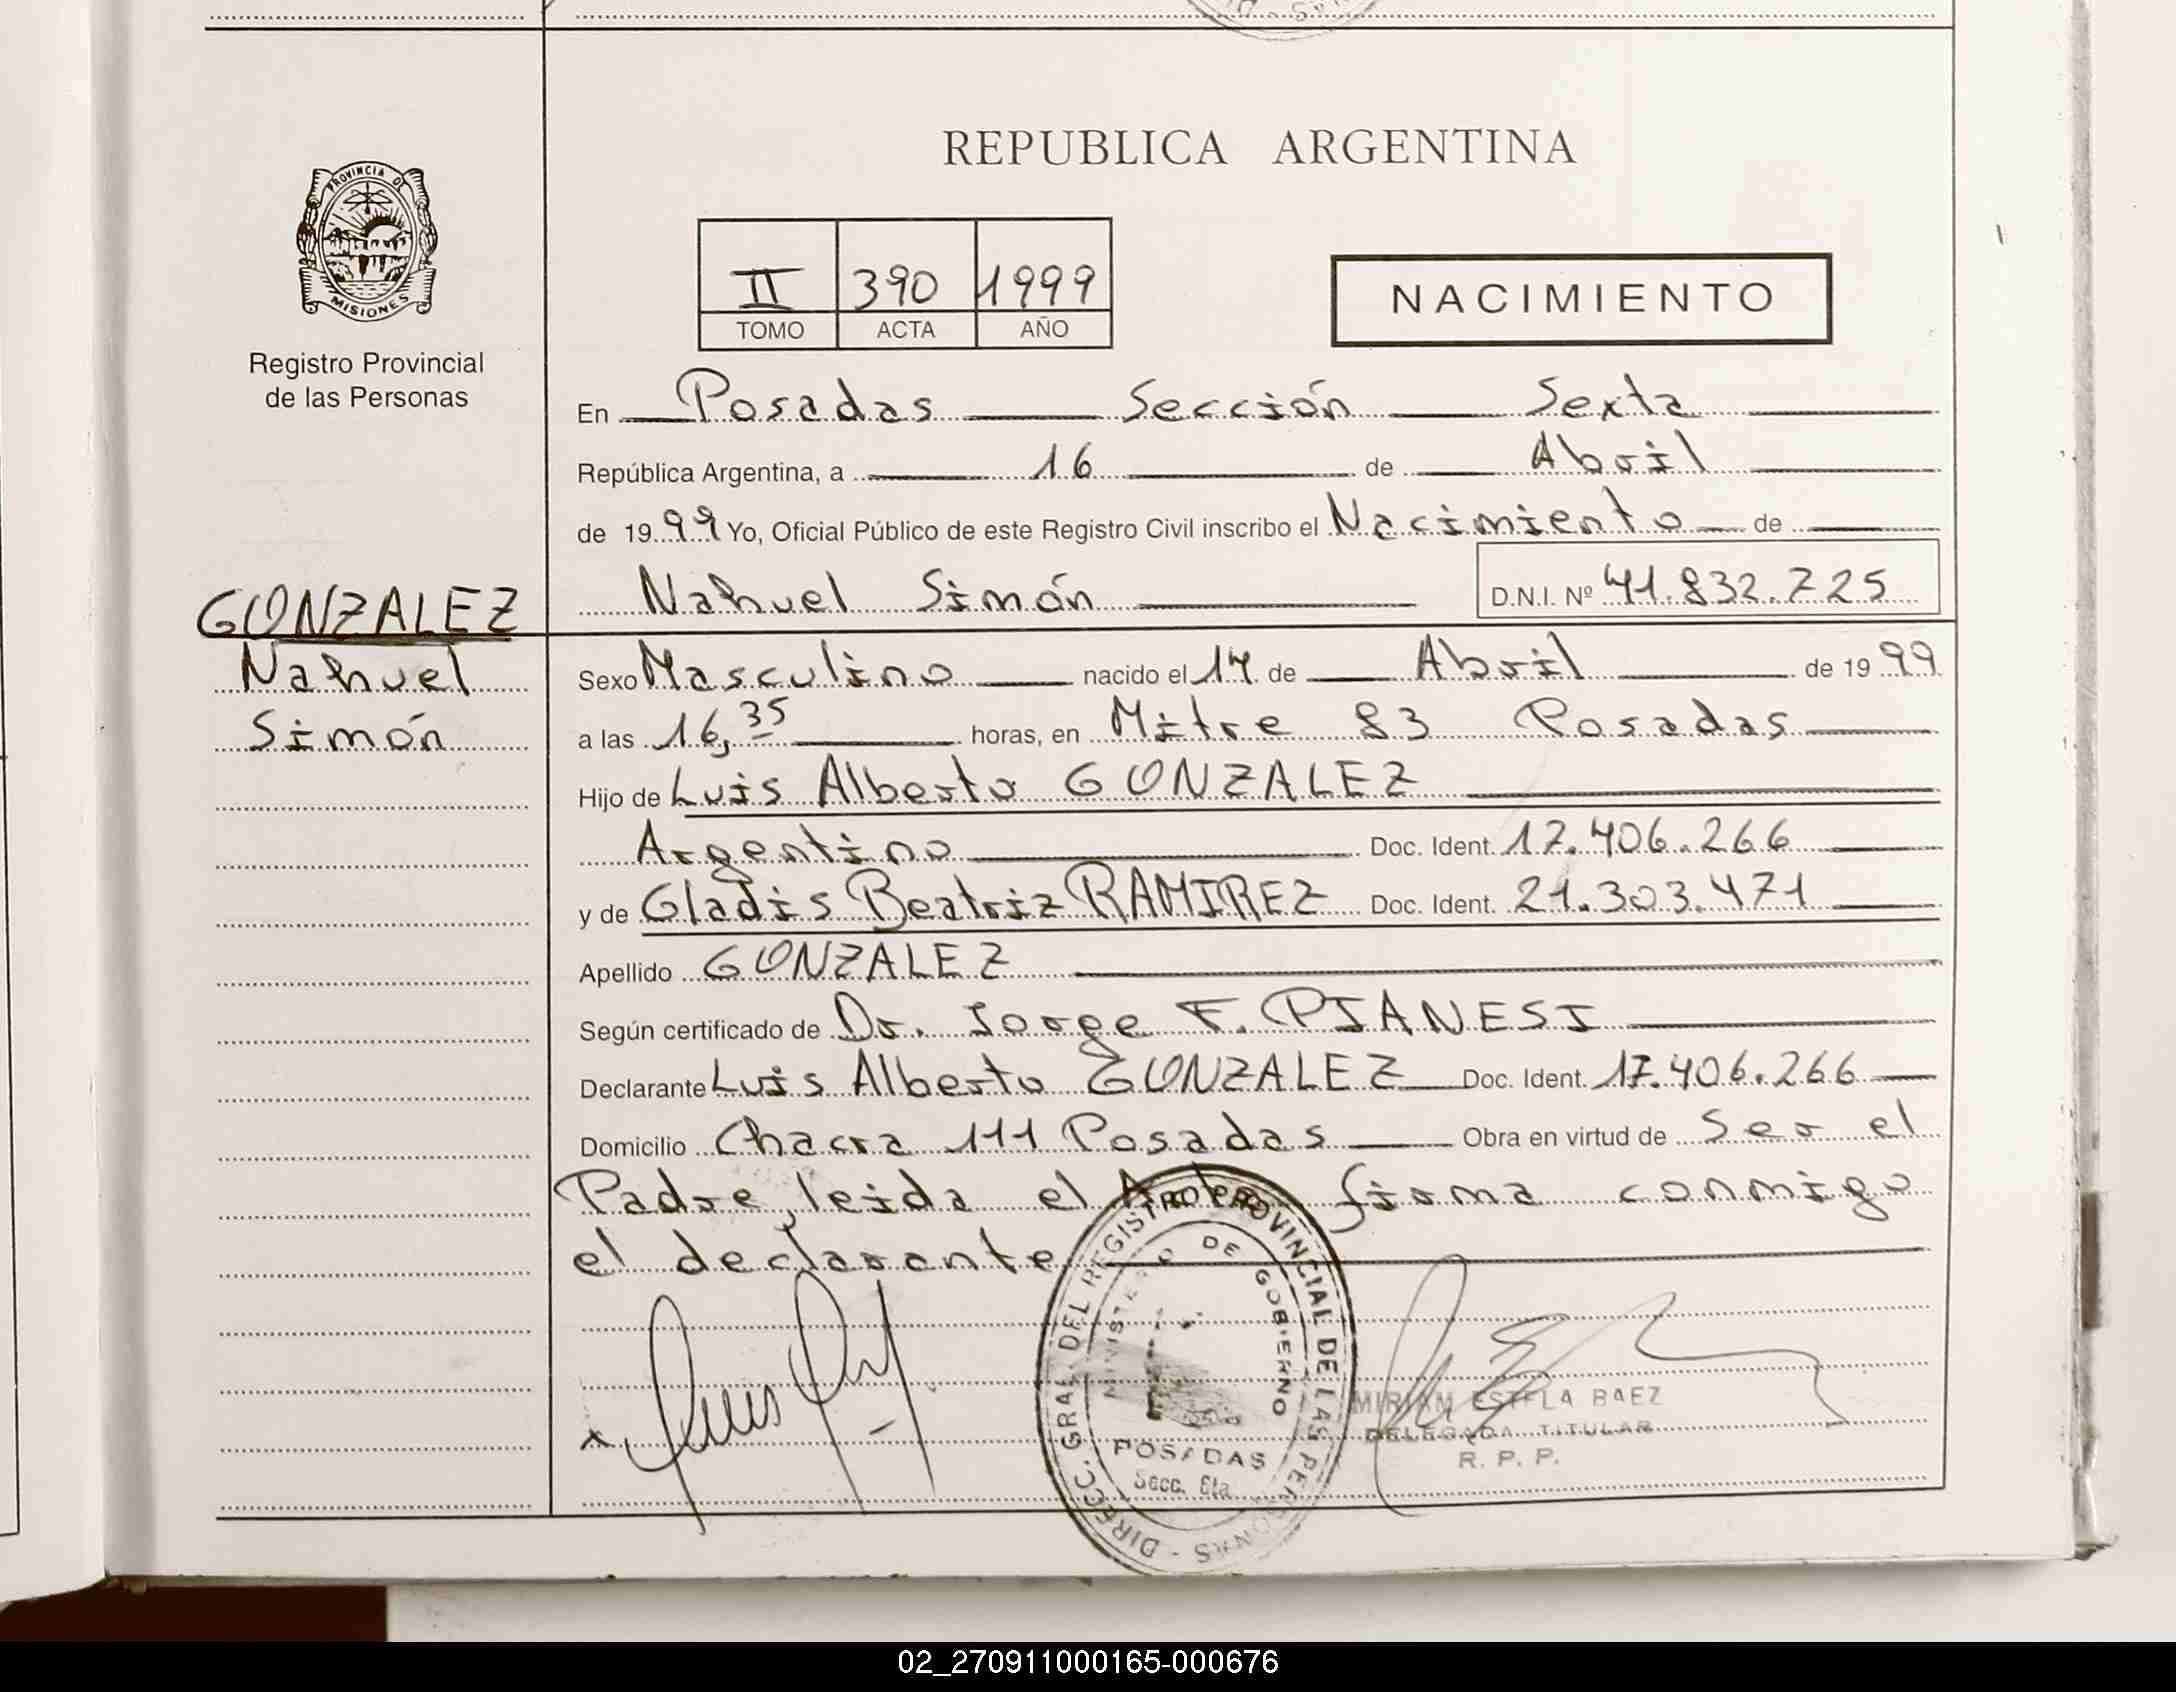 REPUBLICA ARGENTINA
PROVINCIA DE
MISIONES
Registro Provincial
de las Personas
II 390 1999
TOMO ACTA AÑO
NACIMIENTO
En Posadas Sección Sexta
República Argentina, a 16 de Abril
de 1999 Yo, Oficial Público de este Registro Civil inscribo el Nacimiento de
Nahuel Simón D.N.I. Nº 41.832.725
GONZALEZ
Nahuel
Simón
Sexo Masculino nacido el 14 de Abril de 1999
a las 16,35 horas, en Mitre 83 Posadas
Hijo de Luis Alberto GONZALEZ
Argentino Doc. Ident. 17.406.266
y de Gladis Beatriz RAMIREZ Doc. Ident. 21.303.471
Apellido GONZALEZ
Según certificado de Dr. Jorge F. PIANESI
Declarante Luis Alberto GONZALEZ Doc. Ident. 17.406.266
Domicilio Chacra 111 Posadas Obra en virtud de Ser el
Padre, leida el Acta firma conmigo
el declarante
DIRECC. GRAL. DEL REGISTRO PROVINCIAL DE LAS PERSONAS
MINISTERIO DE GOBIERNO
POSADAS
Secc. 6ta.
MIRIAM ESTELA BAEZ
DELEGADA TITULAR
R. P. P.
02_270911000165-000676